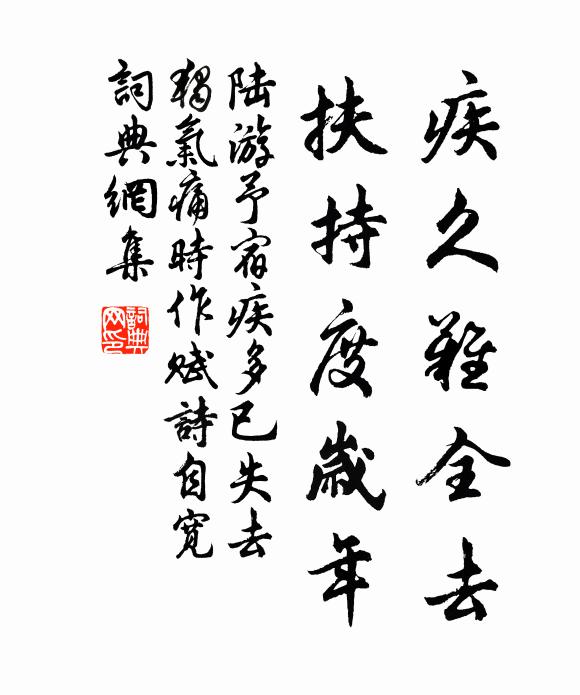 疾久難全去
扶持度歲年
陆游予宿疾多已失去
獨氣痛時作赋詩自寬
詞典網集
詞典网印